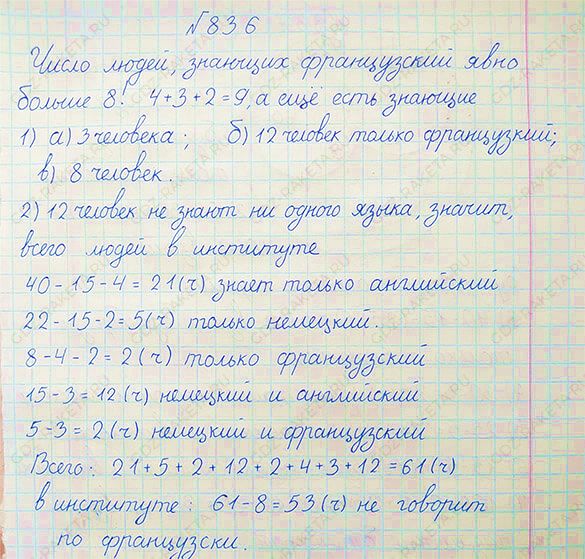 №836
Число людей, знающих французский явно
больше 8! 4+3+2=9, а ещё есть знающие
1) а) 3 человека; б) 12 человек только французкий;
в) 8 человек.
2) 12 человек не знают ни одного языка, значит,
всего людей в институте
40-15-4=21(ч) знает только английский
22-15-2=5(ч) только немецкий.
8-4-2=2(ч) только французский
15-3=12(ч) немецкий и английский
5-3=2(ч) немецкий и французский
Всего: 21+5+2+12+2+4+3+12=61(ч)
в институте: 61-8=53(ч) не говорит
по французски.
GDZ-RAKETA.RU